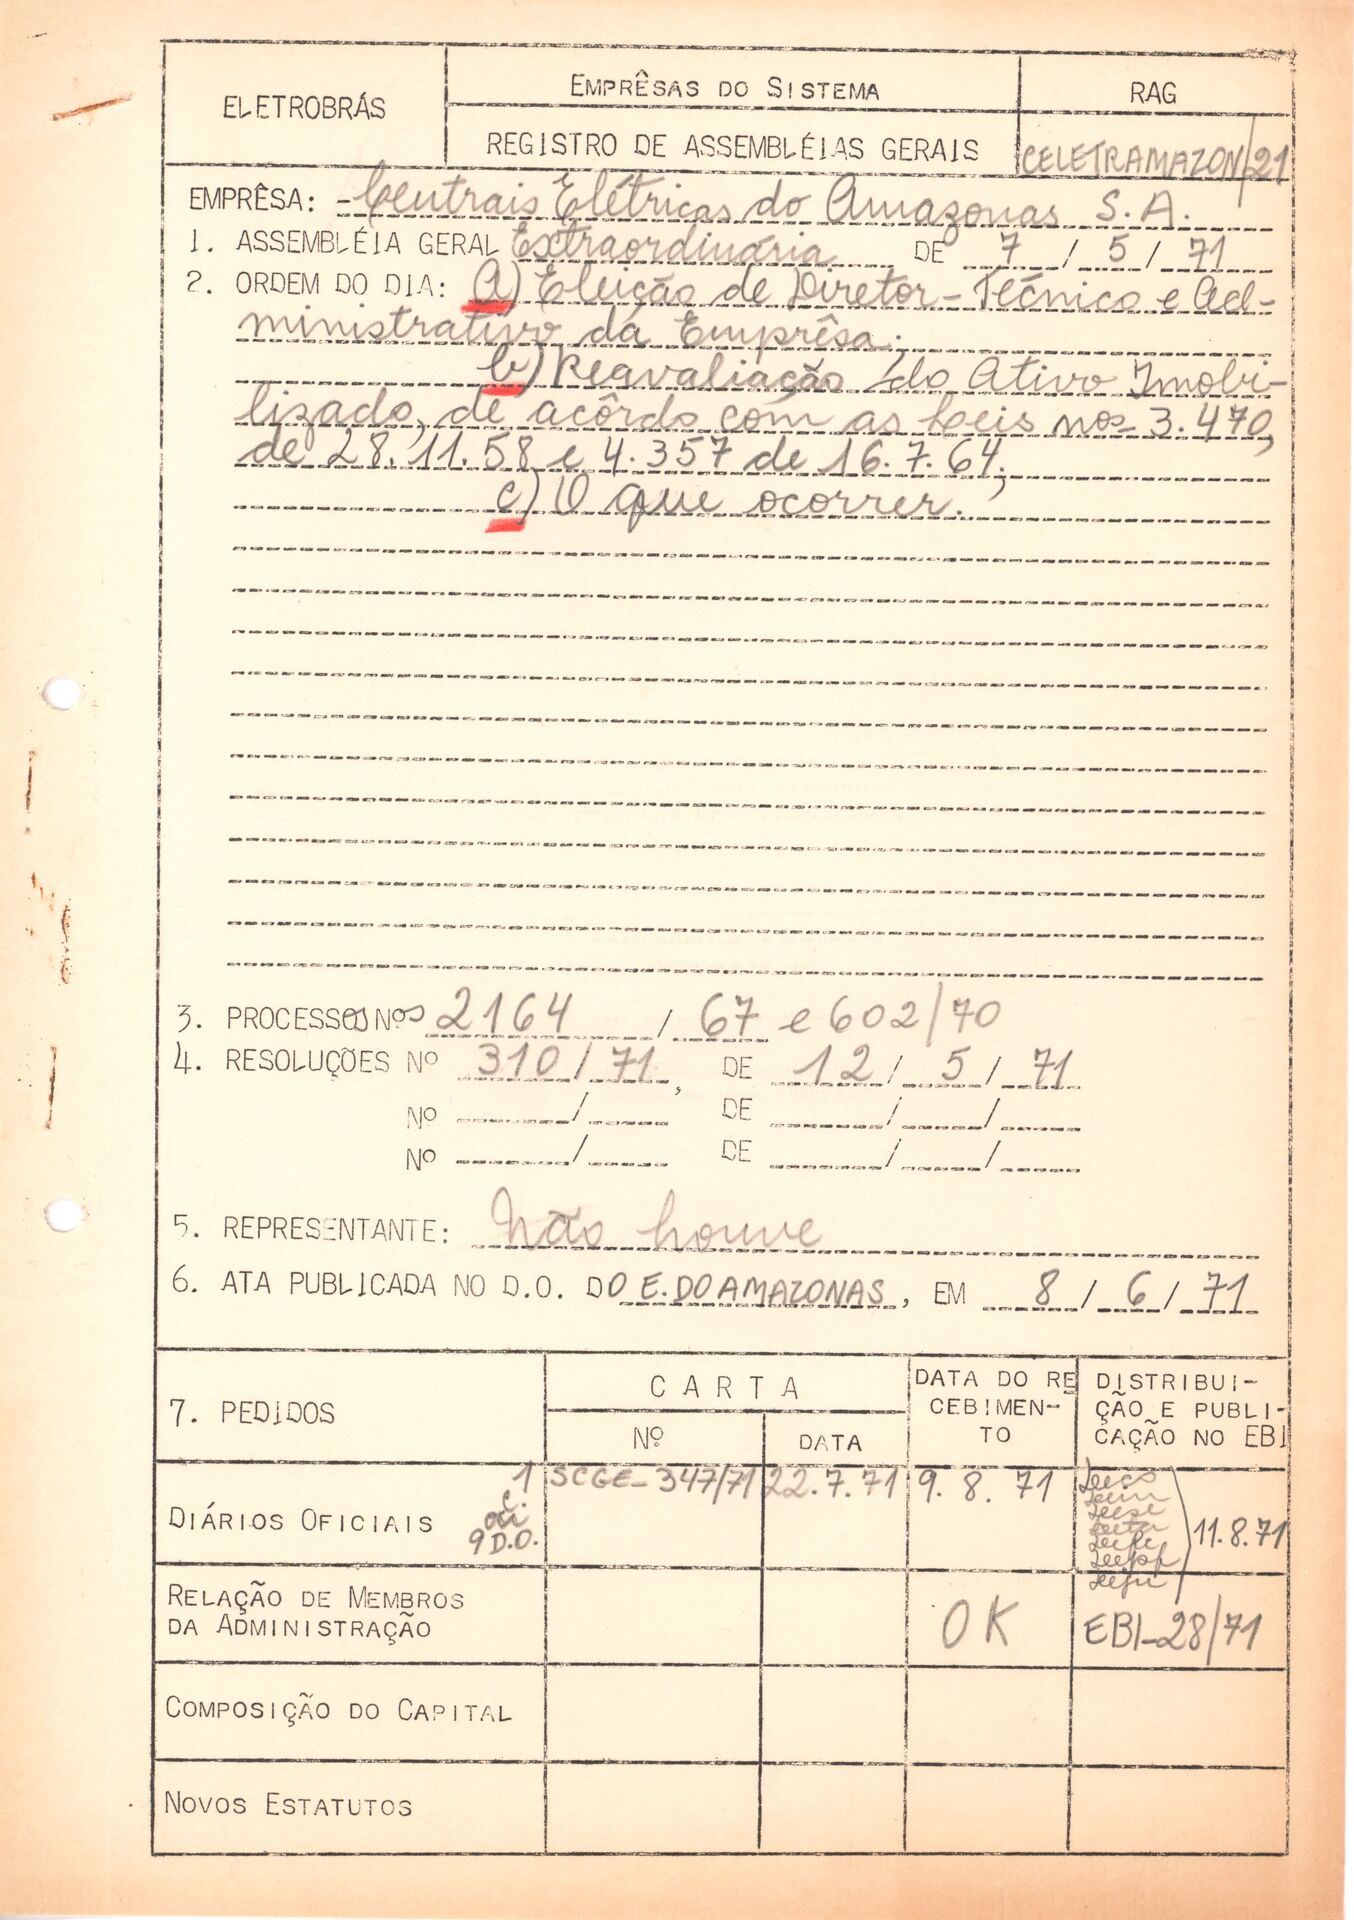 ELETROBRÁS
EMPRÊSAS DO SISTEMA
RAG
REGISTRO DE ASSEMBLÉIAS GERAIS
CELETRAMAZON/21
EMPRÊSA: Centrais Elétricas do Amazonas S.A.
1. ASSEMBLÉIA GERAL Extraordinária DE 7 / 5 / 71
2. ORDEM DO DIA: a) Eleição de Diretor-Técnico e Ad-
ministrativo da Emprêsa;
b) Reavaliação do Ativo Imobi-
lizado, de acôrdo com as Leis nos 3.470,
de 28.11.58 e 4.357 de 16.7.64;
c) O que ocorrer.
3. PROCESSOS Nos 2164 / 67 e 602/70
4. RESOLUÇÕES Nº 310 / 71, DE 12 / 5 / 71
Nº / DE / /
Nº / DE / /
5. REPRESENTANTE: Não houve
6. ATA PUBLICADA NO D.O. DO E. DO AMAZONAS, EM 8 / 6 / 71
7. PEDIDOS
CARTA
Nº
DATA
DATA DO RE
CEBIMEN-
TO
DISTRIBUI-
ÇÃO E PUBLI-
CAÇÃO NO EBI
DIÁRIOS OFICIAIS
1
9 D.O.
SCGE-347/71
22.7.71
9.8.71
11.8.71
RELAÇÃO DE MEMBROS
DA ADMINISTRAÇÃO
OK
EBI-28/71
COMPOSIÇÃO DO CAPITAL
NOVOS ESTATUTOS